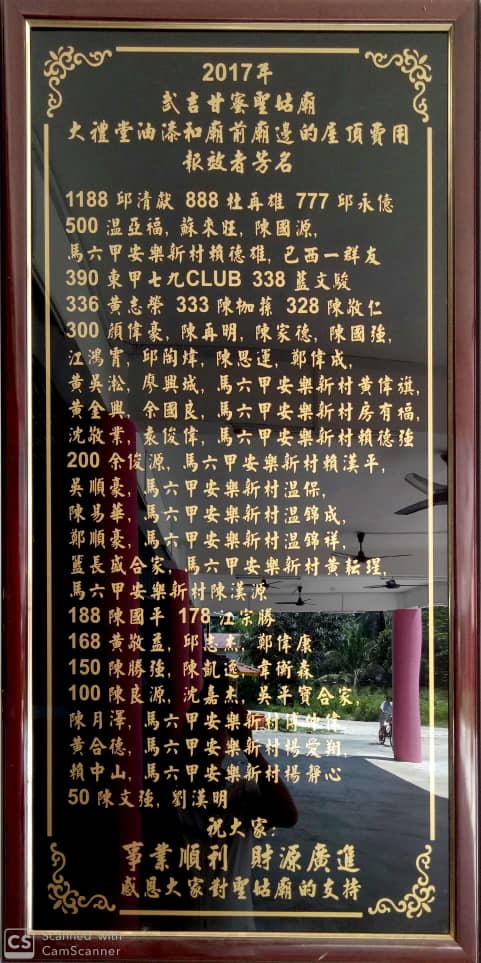 2017年
武吉甘蜜聖姑廟
大禮堂油漆和廟前廟邊的屋頂費用
報效者芳名
1188 邱清獻 888 杜再雄 777 邱永億
500 温亞福, 蘇來旺, 陳國源,
馬六甲安樂新村賴德雄, 巴西一群友
390 東甲七九CLUB 338 藍文駿
336 黃志榮 333 陳枷蓀 328 陳敬仁
300 顏偉豪, 陳再明, 陳家德, 陳國強,
江鴻霄, 邱蔺煒, 陳思運, 鄭偉成,
黃吳淞, 廖興城, 馬六甲安樂新村黃偉旗,
黃金興, 余國良, 馬六甲安樂新村房有福,
沈敬業, 袁俊偉, 馬六甲安樂新村賴德強
200 余俊源, 馬六甲安樂新村賴漢平,
吳順豪, 馬六甲安樂新村温保,
陳易華, 馬六甲安樂新村温錦成,
鄭順豪, 馬六甲安樂新村温錦祥,
藍長盛合家, 馬六甲安樂新村黃耘瑾,
馬六甲安樂新村陳漢源
188 陳國平 178 江宗勝
168 黃敬益, 邱志杰, 鄭偉康
150 陳勝強, 陳凱逸, 韋衛森
100 陳良源, 沈嘉杰, 吳平寶合家,
陳月澤, 馬六甲安樂新村傅
黃合德, 馬六甲安樂新村楊愛翔,
賴中山, 馬六甲安樂新村楊靜心
50 陳文強, 劉漢明
祝大家:
事業順利 財源廣進
感恩大家對聖姑廟的支持
CS Scanned with
CamScanner